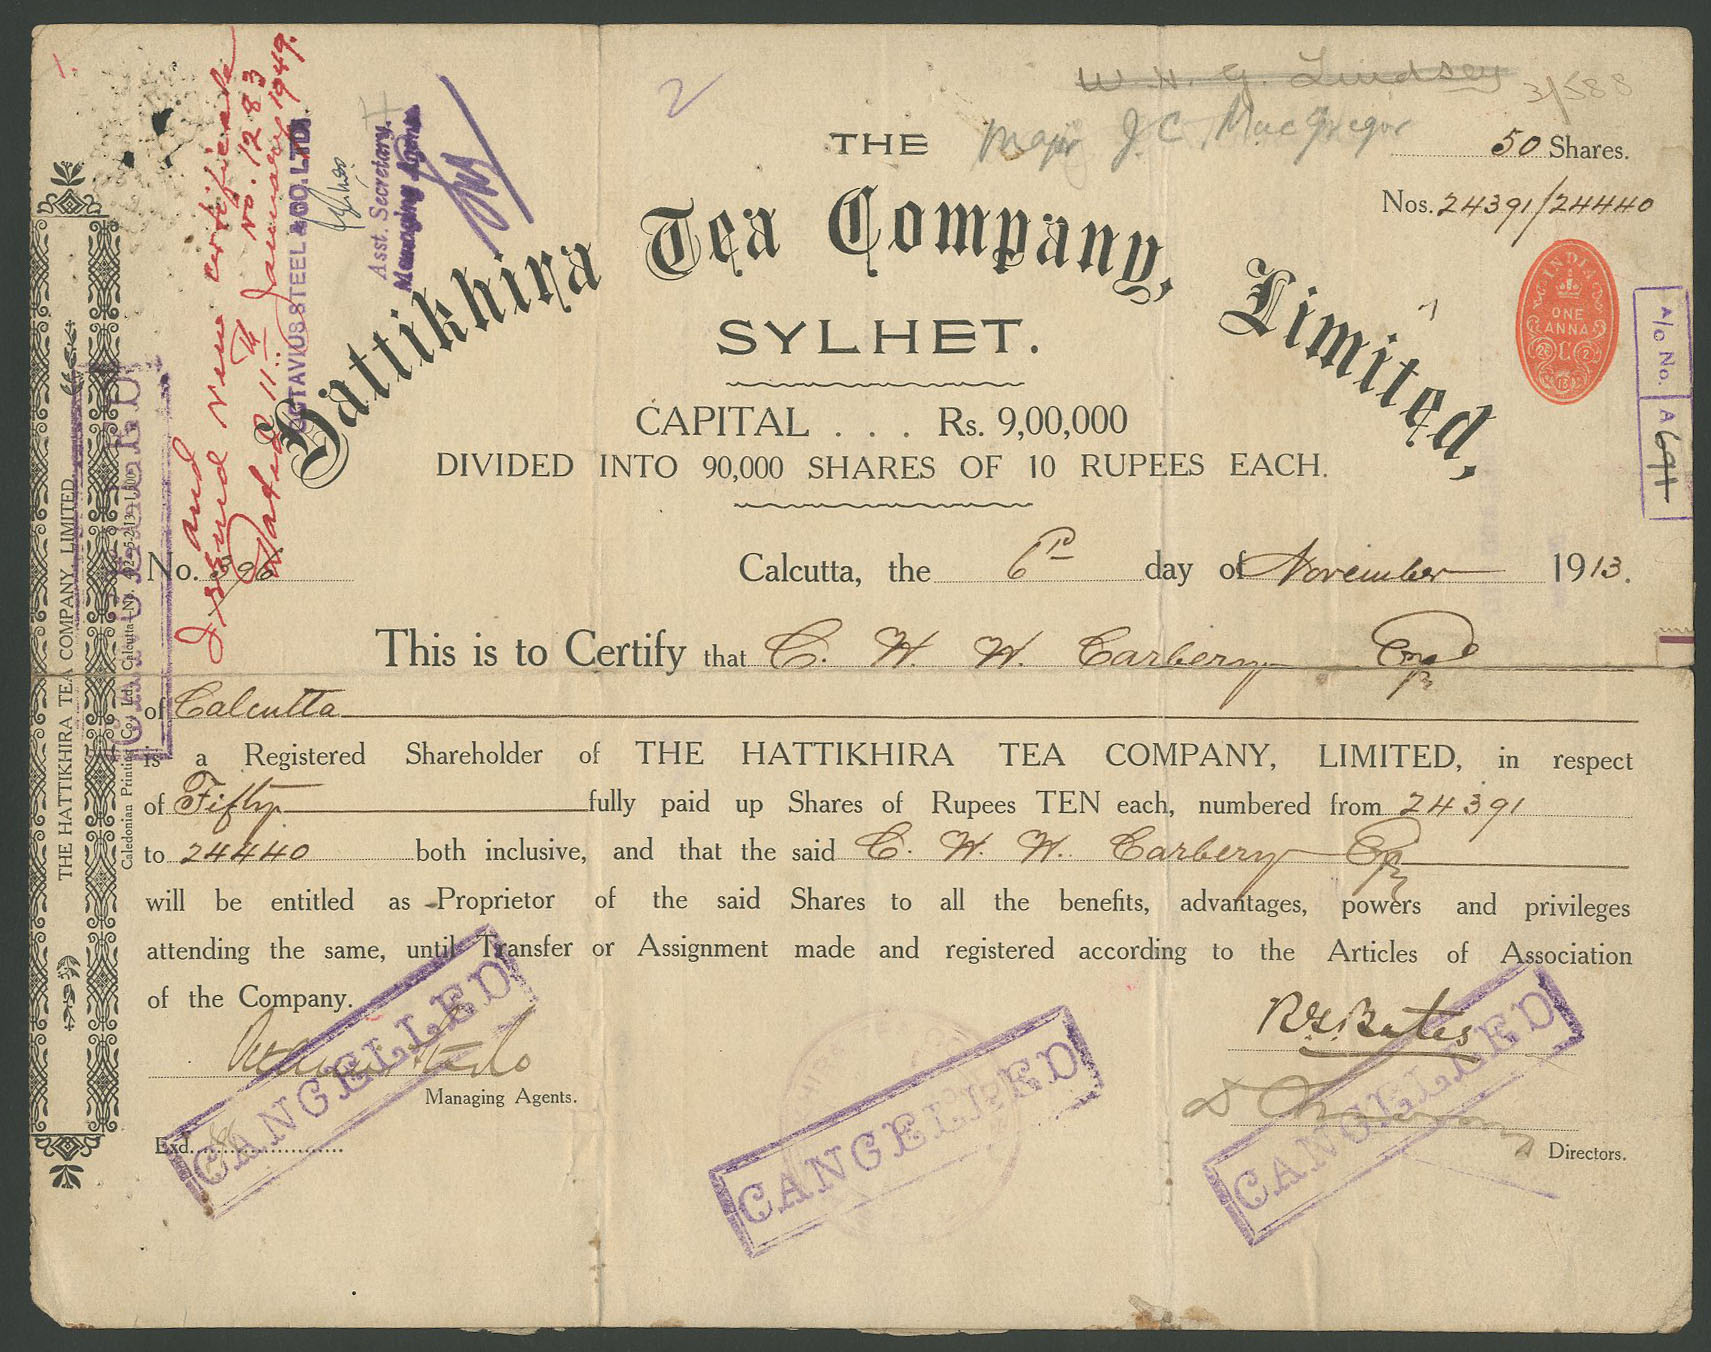 1.
2
W. H. G. Lindsey
3/588
Major J. C. MacGregor
50 Shares.
Nos. 24391/24440
THE
Hattikhira Tea Company, Limited,
SYLHET.
INDIA
ONE
ANNA
A/c No. A 691
CAPITAL . . . Rs. 9,00,000
DIVIDED INTO 90,000 SHARES OF 10 RUPEES EACH.
and
Issued new certificate
No. 1283
Dated 11th January 1949.
OCTAVIUS STEEL & CO. LTD.
Asst. Secretary.
Managing Agents
CANCELLED
THE HATTIKHIRA TEA COMPANY, LIMITED
No. 396
Calcutta, the 6th day of November 1913.
This is to Certify that C. W. W. Carbery Esqr
of Calcutta
is a Registered Shareholder of THE HATTIKHIRA TEA COMPANY, LIMITED, in respect
of Fifty fully paid up Shares of Rupees TEN each, numbered from 24391
to 24440 both inclusive, and that the said C. W. W. Carbery Esqr
will be entitled as Proprietor of the said Shares to all the benefits, advantages, powers and privileges
attending the same, until Transfer or Assignment made and registered according to the Articles of Association
of the Company.
Managing Agents.
Exd.
Directors.
CANCELLED
CANCELLED
CANCELLED